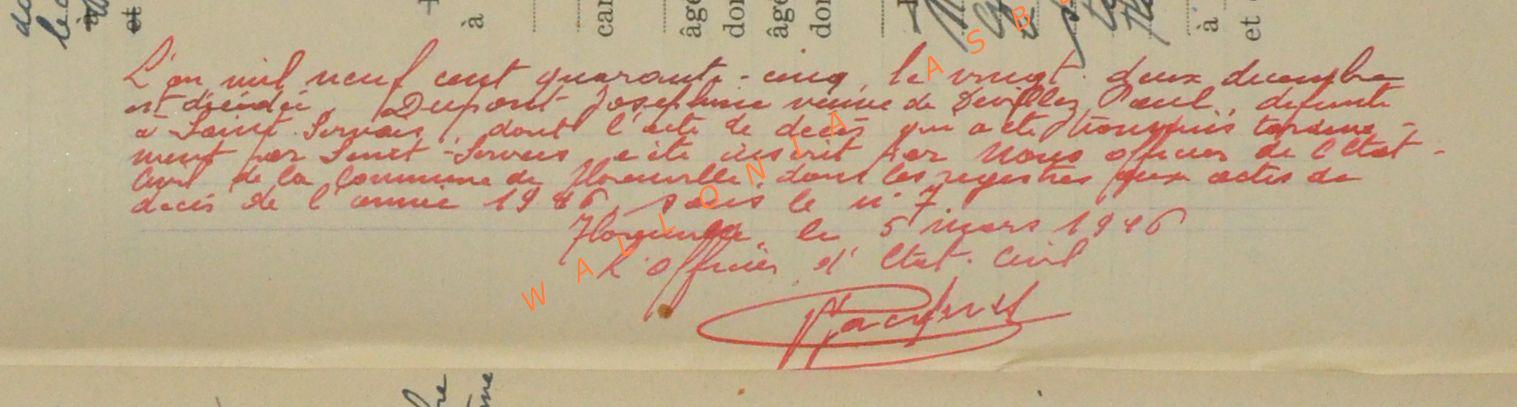 à
et
à
âge
don
âge
don
à
et
L'an mil neuf cent quarante-cinq, le vingt deux decembre
est décédée, Dupont Josephine veuve de Devillez Paul, defunte
à Saint Servais, dont l'acte de decès qui a été transmis tardive-
ment par Saint-Servais, a été inscrit par Nous officier de l'Etat-
Civil de la Commune de Florenville, dans les registres aux actes de
decès de l'année 1946, sous le n° 7
Florenville, le 5 mars 1946
L'officier d'Etat-Civil
WALLONIA ASB